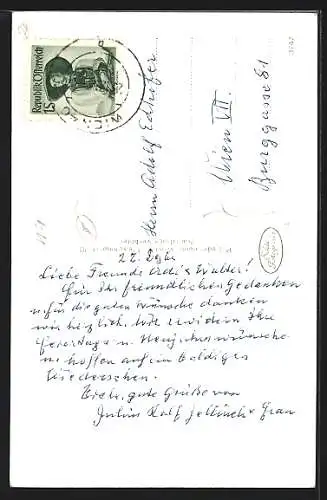 Republik Österreich
1 S
Herrn Adolf
Wien VII.
Burggasse 81
27. Dez.
Liebe Freunde Adi & Walter!
Für Ihr freundliches Gedenken
u. für die guten Wünsche danken
wir herzlich. Wir erwidern Ihre
Feiertags u. Neujahrswünsche
u. hoffen auf ein baldiges
Wiedersehen.
Viele, gute Grüße von
Julius Rolf Jellinek & Frau